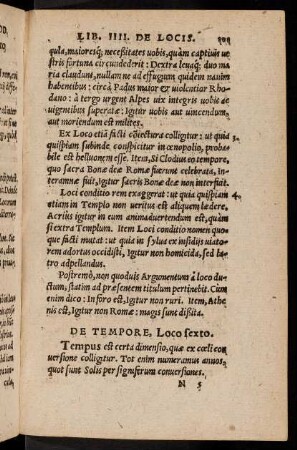 LIB. IIII. DE LOCIS.
gula, maioresq; necessitates uobis, quàm captiuis ue
stris fortuna circundederit: Dextra leuaq; duo ma
ria claudunt, nullam ne ad effugum quidem nauim
habentibus: circà Padus maior & uiolentior Rho
dano: à tergo urgent Alpes uix integris uobis &
uigentibus superatæ: Igitur uobis aut uincendum,
aut moriendum est milites.
Ex Loco etiã facti cõiectura colligitur: ut quia
quispiam subinde conspicitur in œnopolio, proba-
bile est helluonem esse. Item, Si Clodius eo tempore,
quo sacra Bonæ deæ Romæ fuerunt celebrata, In-
teramnæ fuit, Igitur sacris Bonæ deæ non interfuit.
Loci conditio rem exaggerat: ut quia quispiam
etiam in Templo non ueritus est aliquem lædere,
Acrius igitur in eum animaduertendum est, quàm
si extra Templum. Item Loci conditio nomen quo-
que facti mutat: ut quia in sylua ex insidijs uiato-
rem adortus occidisti, Igitur non homicida, sed la-
tro adpellandus.
Postremò, non quoduis Argumentum à loco du-
ctum, statim ad præsentem titulum pertinebit. Cum
enim dico: In foro est, Igitur non ruri. Item, Athe
nis est, Igitur non Romæ: magis sunt dißita.
DE TEMPORE, Loco sexto.
Tempus est certa dimensio, quæ ex cœli con
uersione colligitur. Tot enim numeramus annos,
quot sunt Solis per signiferum conuersiones.
N 5